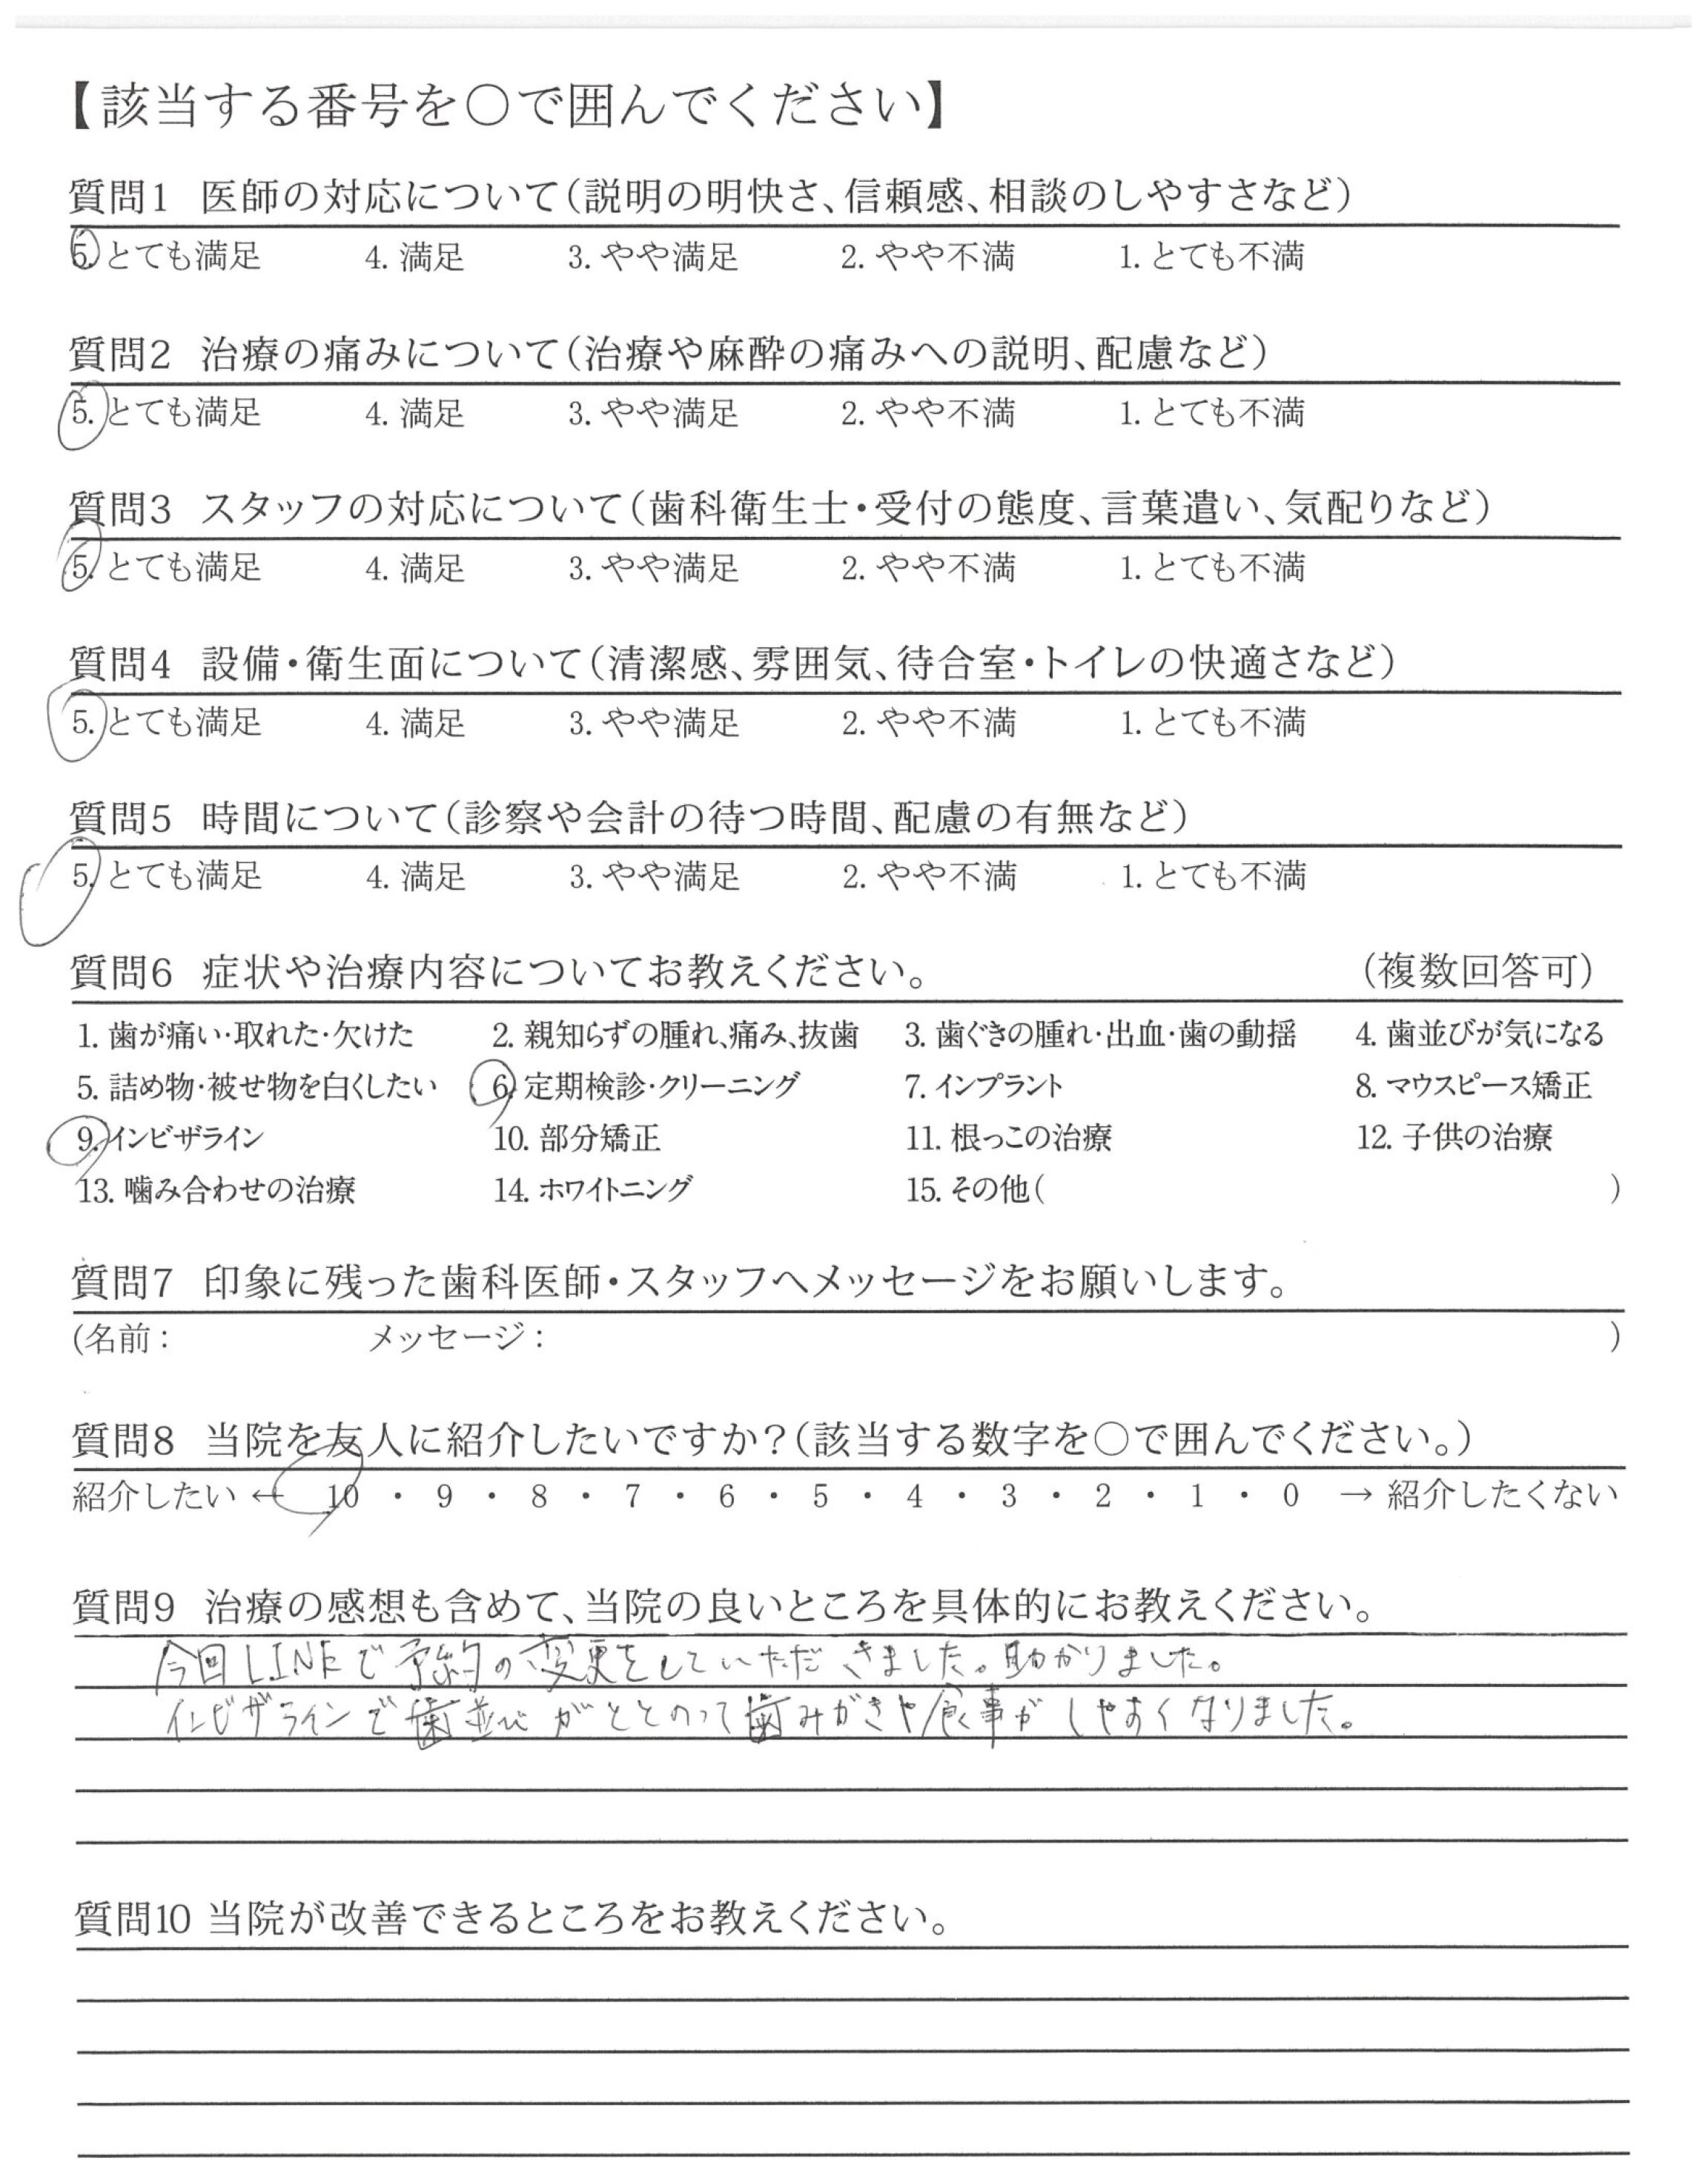 【該当する番号を○で囲んでください】
質問1 医師の対応について(説明の明快さ、信頼感、相談のしやすさなど)
5. とても満足 4. 満足 3. やや満足 2. やや不満 1. とても不満
質問2 治療の痛みについて(治療や麻酔の痛みへの説明、配慮など)
5. とても満足 4. 満足 3. やや満足 2. やや不満 1. とても不満
質問3 スタッフの対応について(歯科衛生士・受付の態度、言葉遣い、気配りなど)
5. とても満足 4. 満足 3. やや満足 2. やや不満 1. とても不満
質問4 設備・衛生面について(清潔感、雰囲気、待合室・トイレの快適さなど)
5. とても満足 4. 満足 3. やや満足 2. やや不満 1. とても不満
質問5 時間について(診察や会計の待つ時間、配慮の有無など)
5. とても満足 4. 満足 3. やや満足 2. やや不満 1. とても不満
質問6 症状や治療内容についてお教えください。 (複数回答可)
1. 歯が痛い・取れた・欠けた 2. 親知らずの腫れ、痛み、抜歯 3. 歯ぐきの腫れ・出血・歯の動揺 4. 歯並びが気になる
5. 詰め物・被せ物を白くしたい 6. 定期検診・クリーニング 7. インプラント 8. マウスピース矯正
9. インビザライン 10. 部分矯正 11. 根っこの治療 12. 子供の治療
13. 噛み合わせの治療 14. ホワイトニング 15. その他( )
質問7 印象に残った歯科医師・スタッフへメッセージをお願いします。
(名前: メッセージ: )
質問8 当院を友人に紹介したいですか?(該当する数字を○で囲んでください。)
紹介したい ← 10 ・ 9 ・ 8 ・ 7 ・ 6 ・ 5 ・ 4 ・ 3 ・ 2 ・ 1 ・ 0 → 紹介したくない
質問9 治療の感想も含めて、当院の良いところを具体的にお教えください。
今回LINEで予約の変更をしていただきました。助かりました。
インビザラインで歯並びがととのって歯みがきや食事がしやすくなりました。
質問10 当院が改善できるところをお教えください。